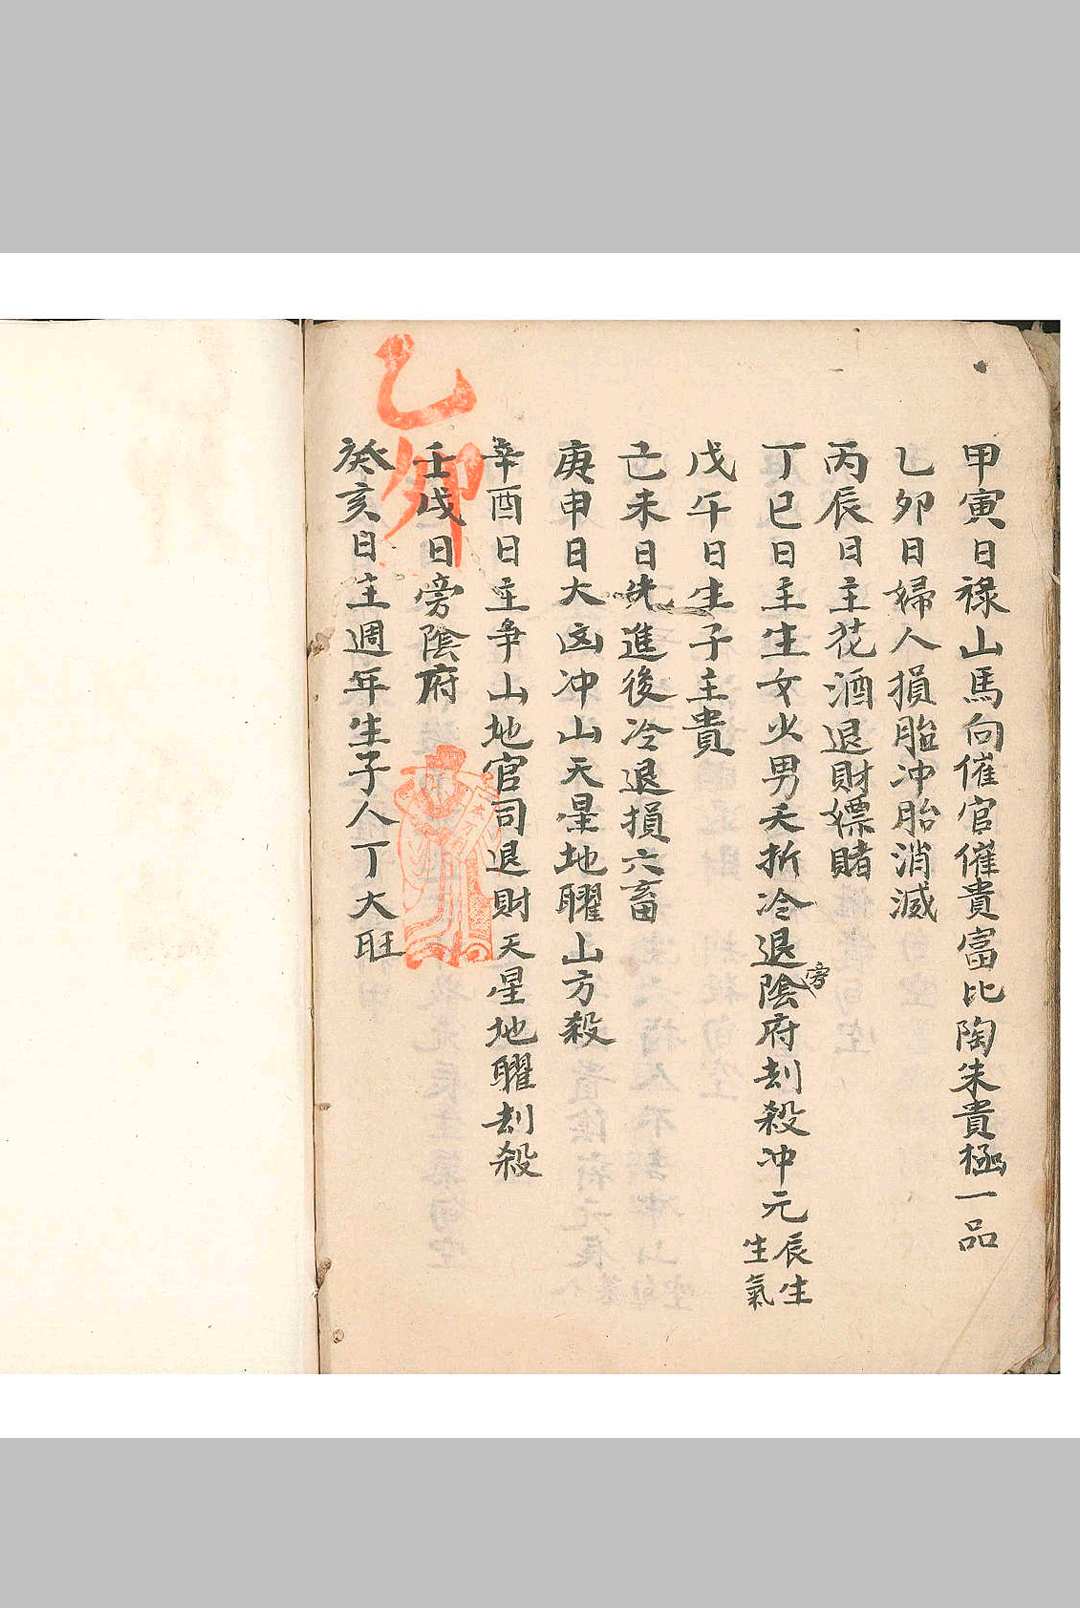 甲寅日祿山馬向催官催貴富比陶朱貴極一品
乙夘日婦人損胎冲胎消滅
丙辰日主花酒退財嫖賭
丁巳日主生女火男夭折冷退旁陰府刦殺冲元辰生生氣
戊午日生子主貴
己未日先進後冷退損六畜
庚申日大凶冲山天星地曜山方殺
辛酉日主爭山地官司退財天星地曜刦殺
壬戌日旁陰府
癸亥日主週年生子人丁大旺
乙卯